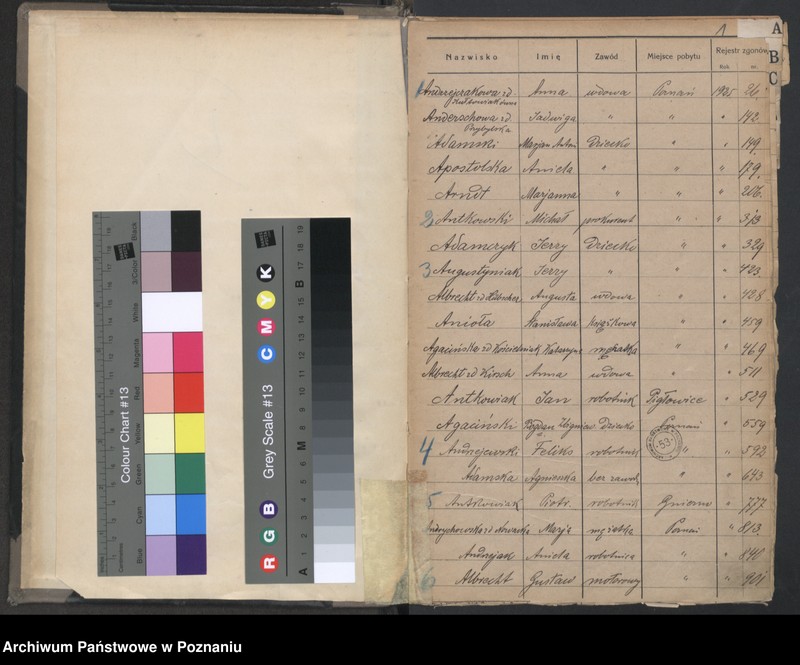 Colour Chart #13
Blue
Cyan
Green
Yellow
Red
Magenta
White
3/Color
Black
Centimetres
Grey Scale #13
R G B
C M Y K
A 1 2 3 4 5 6 M 8 9 10 11 12 13 14 15 B 17 18 19
1
A
B
C
Nazwisko Imię Zawód Miejsce pobytu Rejestr zgonów
Rok nr.
1 Andrzejczakowa zd. Anna wdowa Poznań 1935 26.
Anderschowa zd. Jadwiga " " " 142.
Przybylska
Adamski Marjan Antoni Dziecko " " 149.
Apostolska Aniela " " " 179.
Arndt Marjanna " " " 206.
2 Antkowski Michał prokurent " " 313
Adamczyk Jerzy Dziecko " " 329
3 Augustyniak Jerzy " " " 423.
Albrecht zd. Augusta wdowa " " 428
Anioła Stanisława " " 459
Agacińska zd. Kościelniak Katarzyna mężatka " " 469
Albrecht zd. Kirsch Anna wdowa " " 511
Antkowiak Jan robotnik Pigłowice " 529
Agaciński Zbigniew Dziecko Poznań " 559
4 Andrzejewski Feliks robotnik " " 592
53
Adamska Agnieszka bez zawodu " " 643
5 Antkowiak Piotr robotnik " 777
Marja mężatka Poznań " 813.
Andrzejak Aniela robotnica " " 840
6 Albrecht Gustaw motorowy " " 901
Archiwum Państwowe w Poznaniu